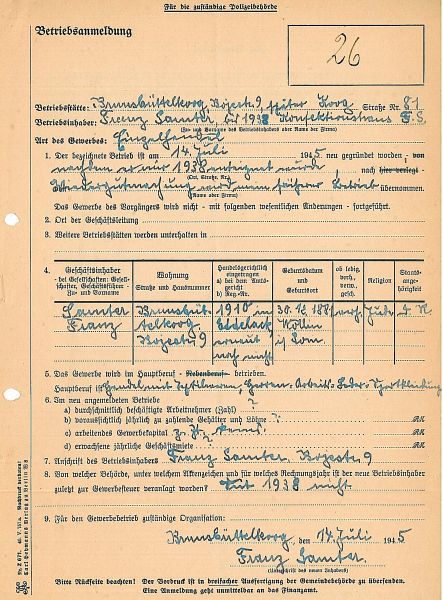 Für die zuständige Polizeibehörde
Betriebsanmeldung
26
Betriebsstätte: Brunsbüttelkoog, Bojestr 9, später Koog Straße Nr. 81
Betriebsinhaber: Franz Samter, bis 1938 Konfektionshaus F.S.
(Zu- und Vorname des Betriebsinhabers oder Name der Firma)
Art des Gewerbes: Einzelhandel
1. Der bezeichnete Betrieb ist am 14. Juli 1945 neu gegründet worden - von
nachdem er mir 1938 enteignet wurde, nach hier verlegt -
(Ort, Straße, Nr.)
Wiedergutmachung mein früherer Betrieb übernommen.
(Name oder Firma)
Das Gewerbe des Vorgängers wird nicht - mit folgenden wesentlichen Änderungen - fortgeführt.
2. Ort der Geschäftsleitung
3. Weitere Betriebsstätten werden unterhalten in
4. Geschäftsinhaber
- bei Gesellschaften: Gesellschafter, Geschäftsführer -
Zu- und Vorname
Wohnung
Straße und Hausnummer
Handelsgerichtlich eingetragen
a) bei dem Amtsgericht
b) Reg.-Nr.
Geburtsdatum und Geburtsort
ob ledig, verh., verw., gesch.
Religion
Staatsangehörigkeit
Samter Brunsbüt- 1910 in 30.12.1881 verh. Jude D.R.
Franz telkoog Eddelak Köllin
Bojestr 9 erneut i/Pom.
noch nicht
5. Das Gewerbe wird im Hauptberuf - Nebenberuf - betrieben.
Hauptberuf ist Handel mit Textilwaren, Herren-Arbeits-Leder-Sportkleidung
6. Im neu angemeldeten Betrieb
a) durchschnittlich beschäftigte Arbeitnehmer (Zahl) ?
b) voraussichtlich jährlich zu zahlende Gehälter und Löhne ? RM
c) arbeitendes Gewerbekapital z. Zt. keins! RM
d) erwachsene jährliche Geschäftsmiete ? RM
7. Anschrift des Betriebsinhabers Franz Samter, Bojestr 9
8. Von welcher Behörde, unter welchem Aktenzeichen und für welches Rechnungsjahr ist der neue Betriebsinhaber
zuletzt zur Gewerbesteuer veranlagt worden? Seit 1938 nicht
9. Für den Gewerbebetrieb zuständige Organisation:
Brunsbüttelkoog, den 14. Juli 1945
Franz Samter
(Unterschrift des neuen Inhabers)
Bitte Rückseite beachten! Der Vordruck ist in dreifacher Ausfertigung der Gemeindebehörde zu übersenden.
Eine Anmeldung geht unmittelbar an das Finanzamt.